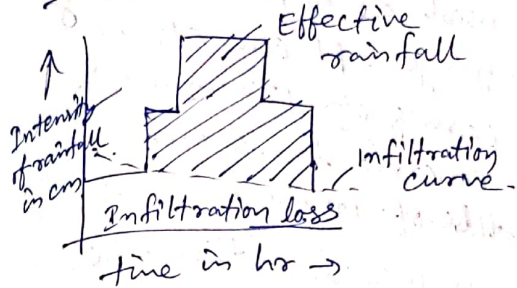 Effective
rainfall
Intensity
of rainfall
in cm
Infiltration
curve.
Infiltration loss
time in hr →